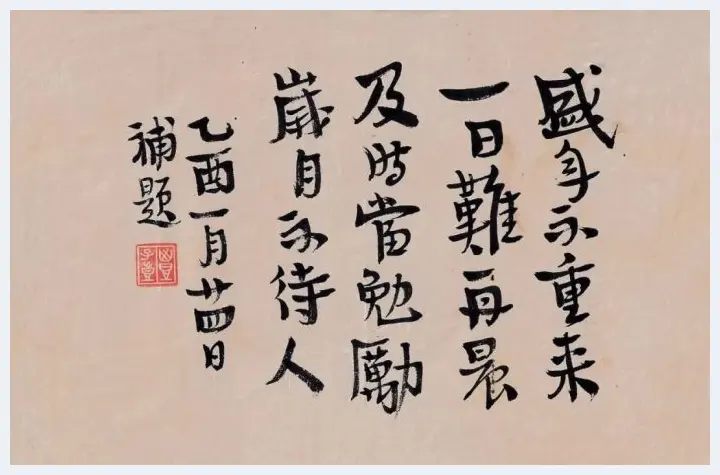 盛年不重来
一日難再晨
及時當勉勵
歲月不待人
乙酉一月廿四日
補題
豐子愷